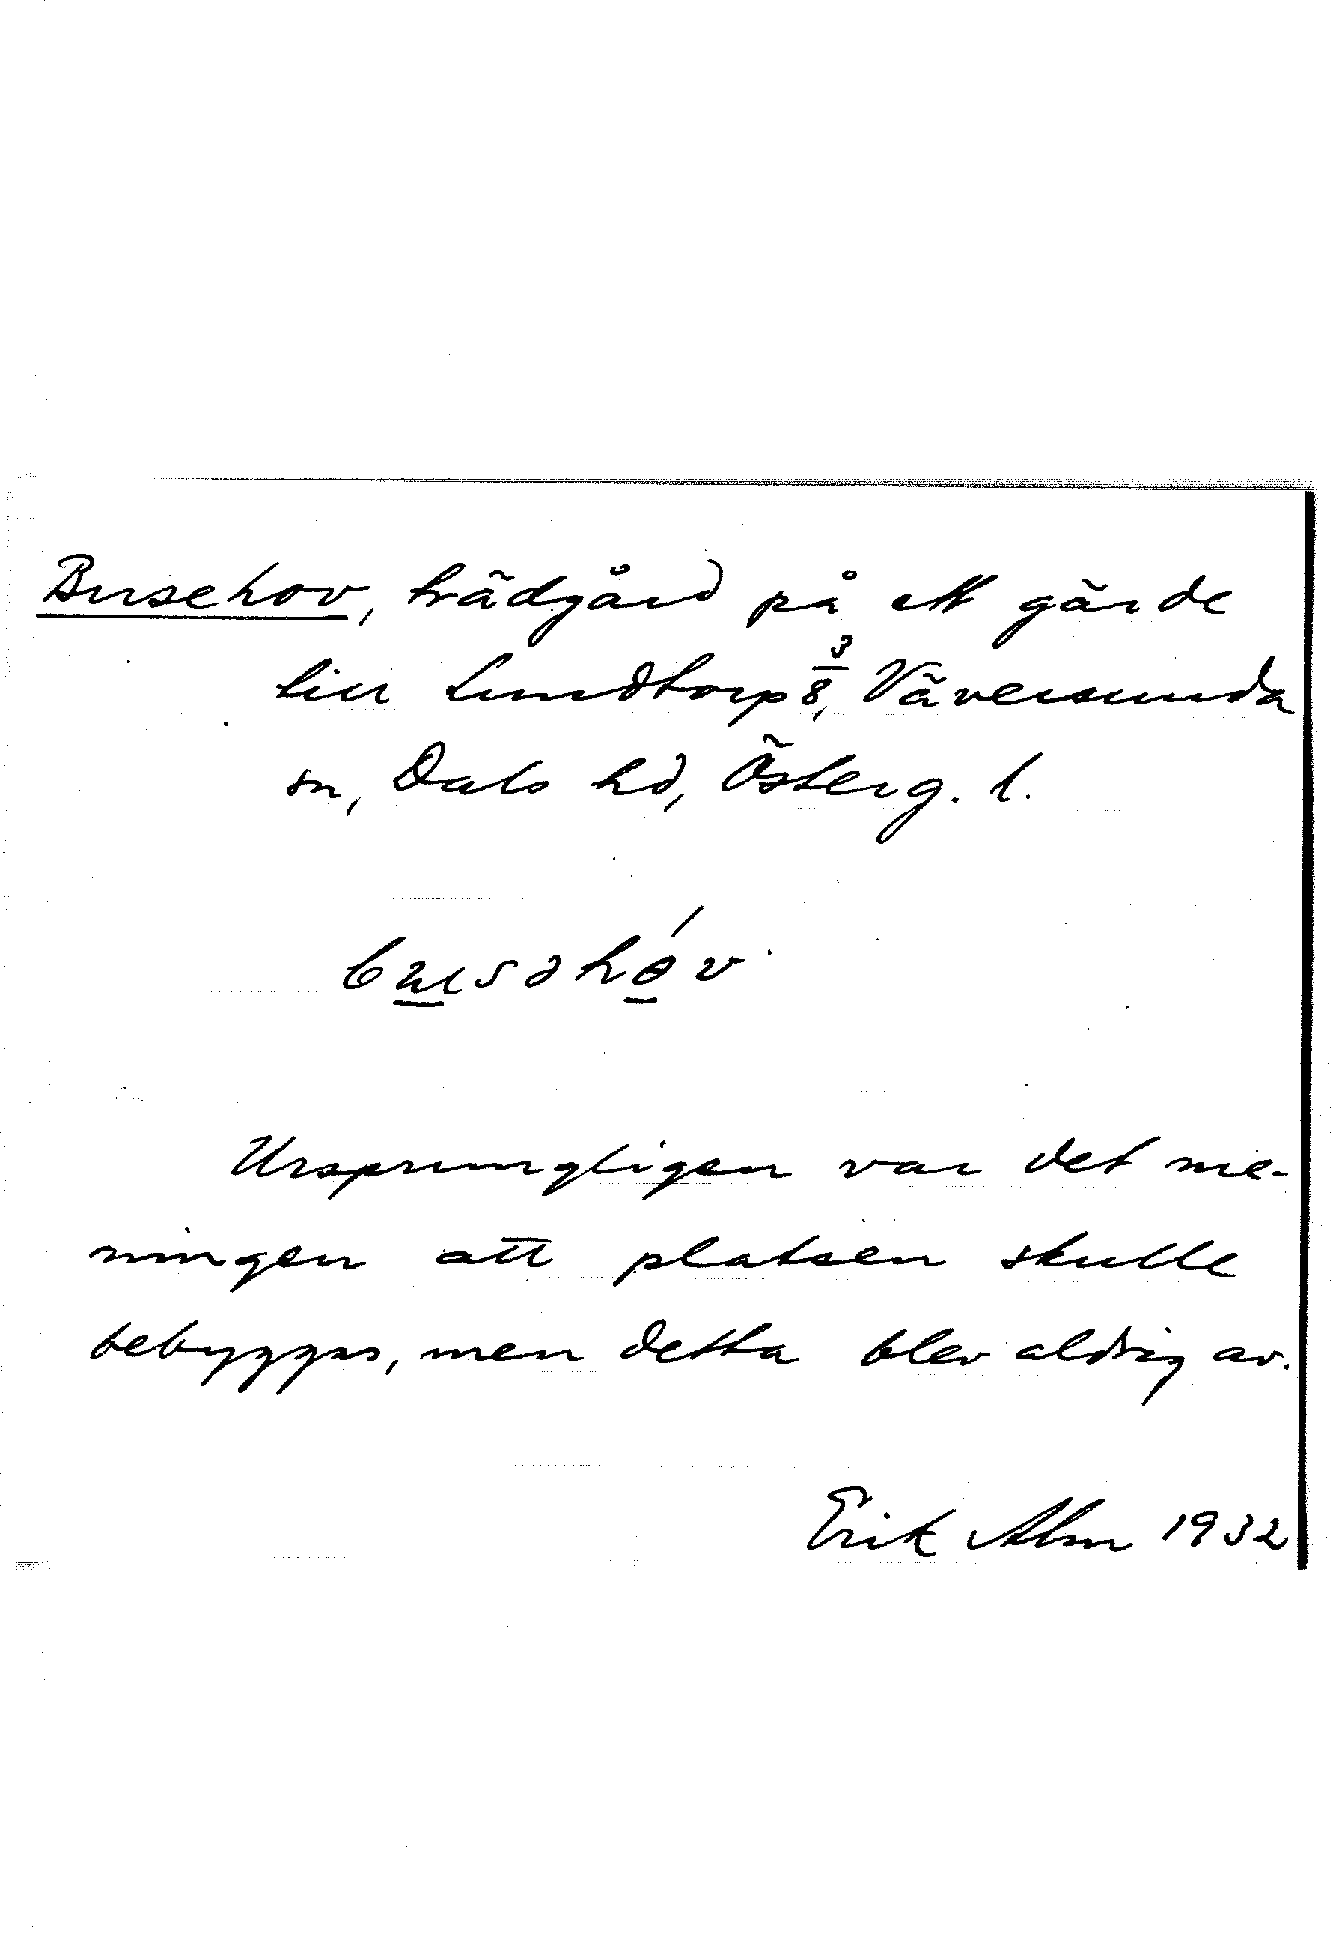 Busehov, trädgård på ett gärde
till Lundtorp 3/8, Väversunda
sn, Dals hd, Österg. l.
busəhóv
Ursprungligen var det me-
ningen att platsen skulle
bebyggas, men detta blev aldrig av.
Erik Alm 1932